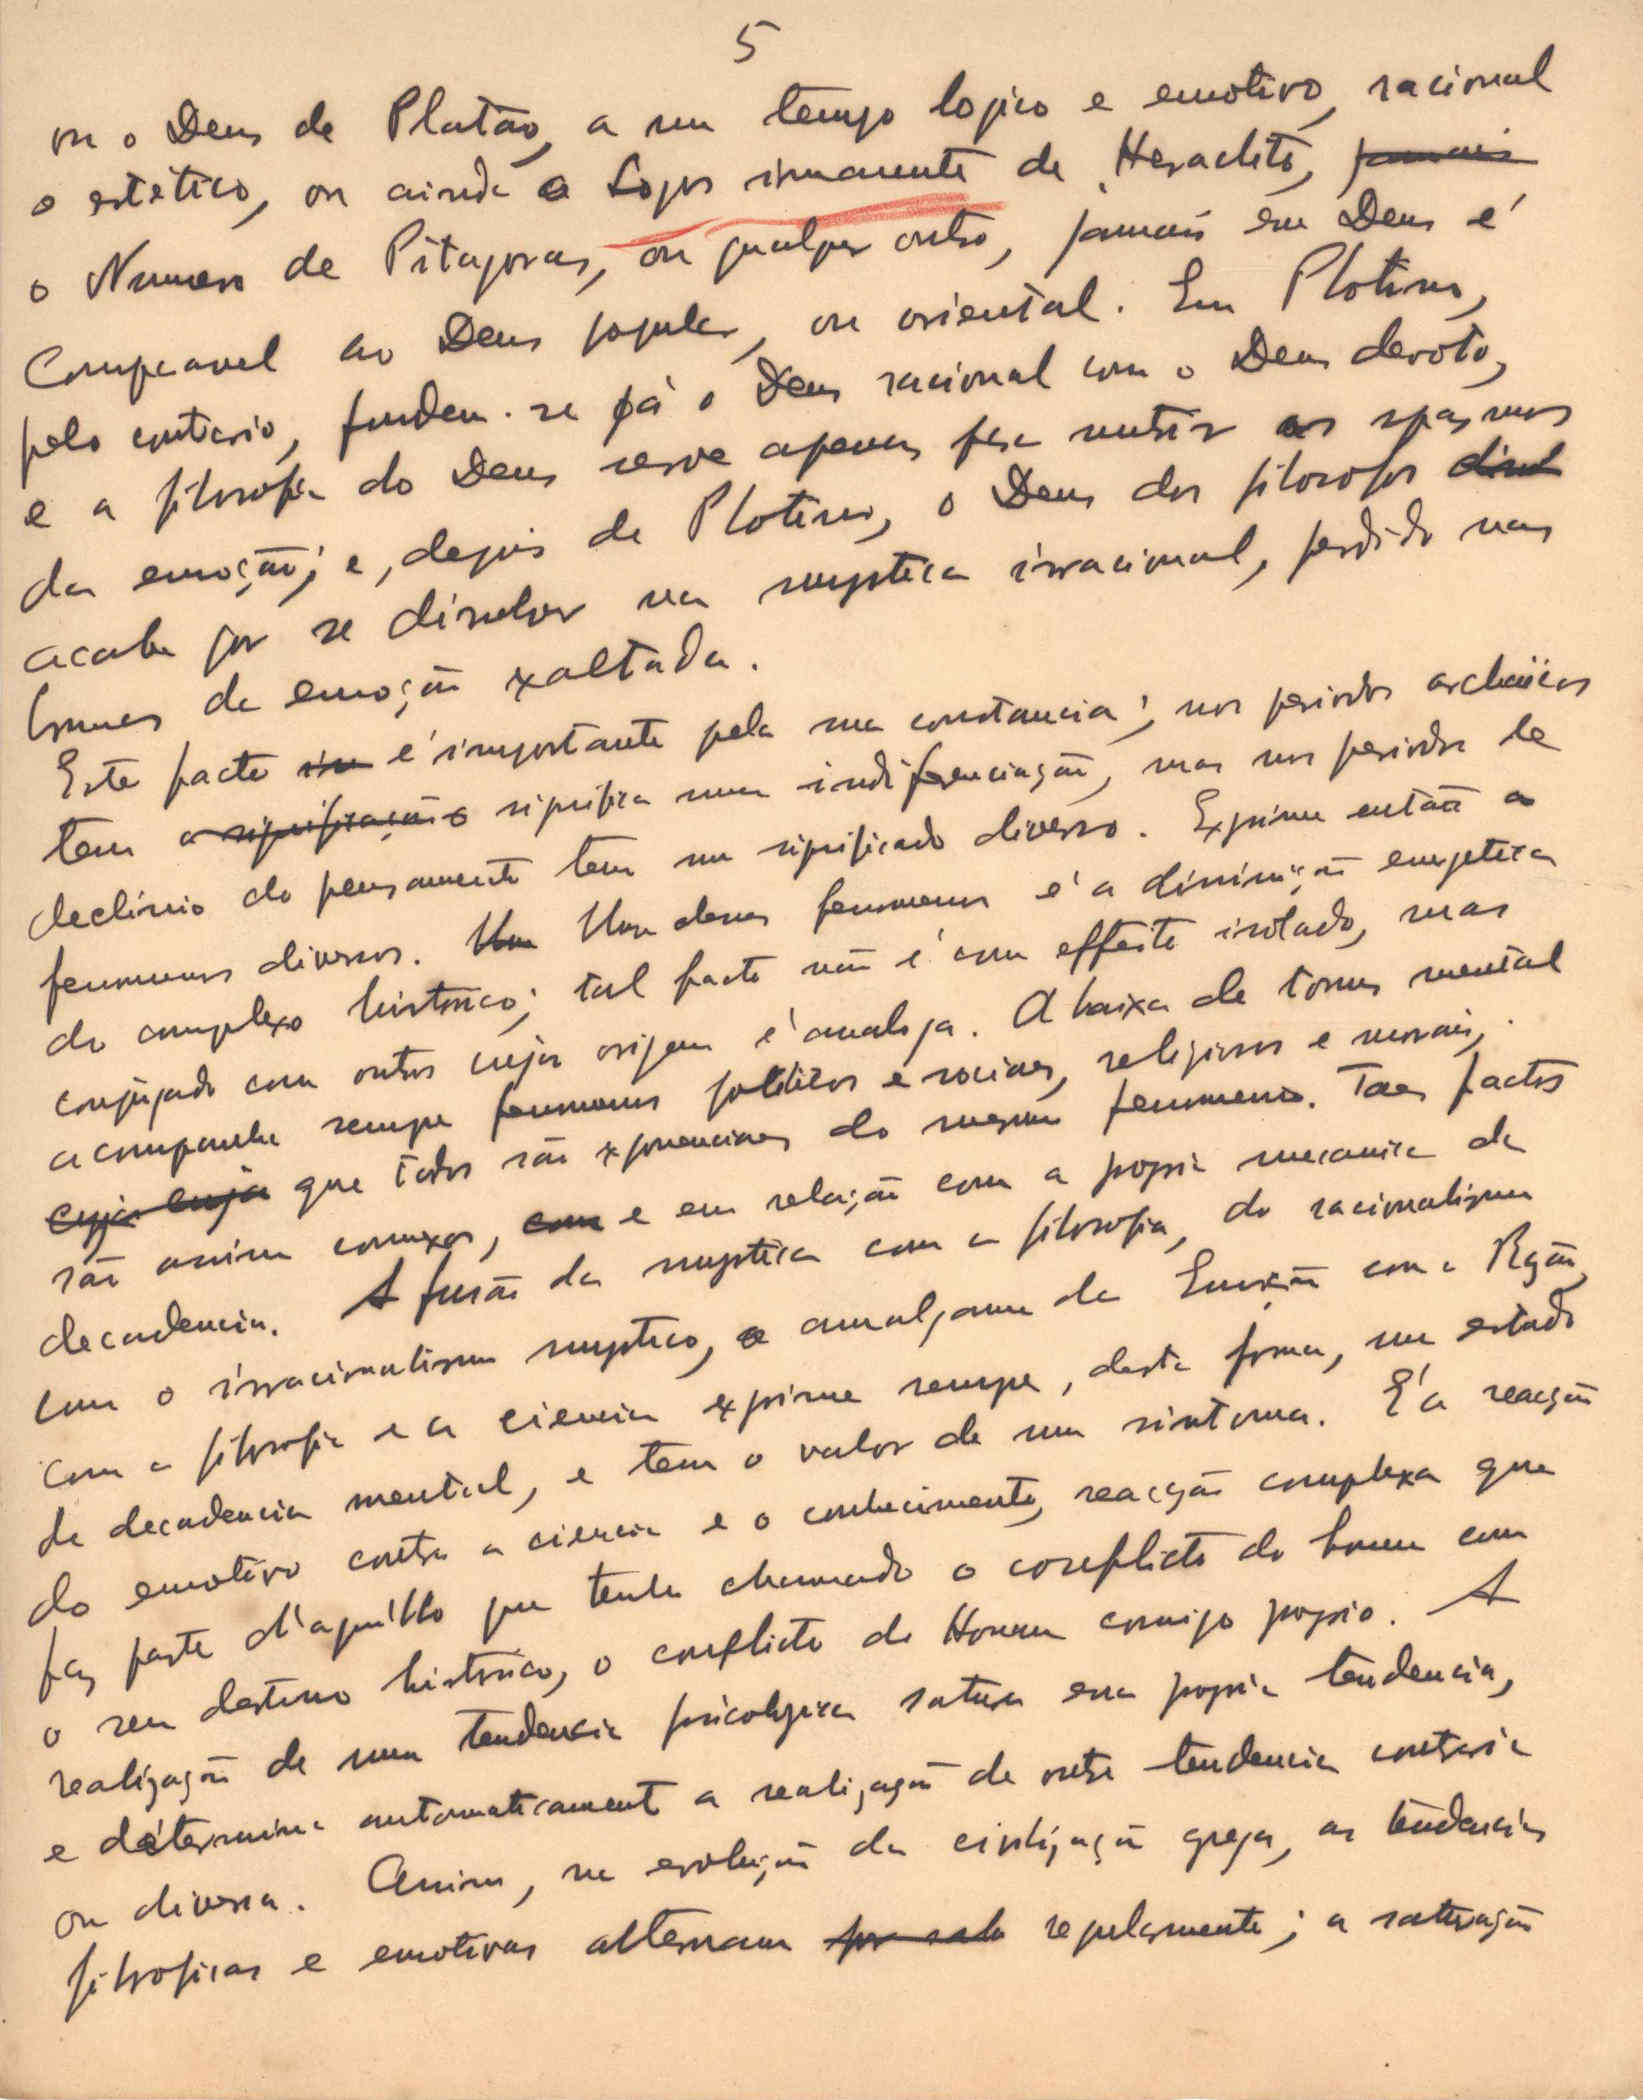 5
ou o Deus de Platão, a um tempo logico e emotivo, racional
e estético, ou ainda o Logos immanente de Heraclito, jamais
o Numero de Pitagoras, ou qualquer outro, jamais esse Deus é
Comparavel ao Deus popular, ou oriental. Em Plotino,
pelo contrario, fundem-se já o Deus racional com o Deus devoto,
e a filosofia do Deus serve apenas para nutrir os espasmos
da emoção; e, depois de Plotino, o Deus dos filosofos dissol
acaba por se dissolver na mystica irracional, perdido nas
brumas da emoção exaltada.
Este facto é importante pela sua constancia; nos periodos archaïcos
tem a significação significa uma indiferenciação, mas nos periodos de
declinio do pensamento tem um significado diverso. Exprime então
fenomenos diversos. Um Um desses fenomenos é a diminuição energetica
do complexo historico; tal facto não é um effeito isolado, mas
conjugado com outros cuja origem é analoga. A baixa de tonus mental
acompanha sempre fenomenos politicos e sociaes, religiosos e moraes,
cuja cuja que todos são exponenciaes do mesmo fenomeno. Taes factos
são assim connexos, com e em relação com a propria mecanica da
decadencia. A fusão da mystica com a filosofia, do racionalismo
com o irracionalismo mystico, o amalgama da Emoção com a Razão,
com a filosofia e a ciencia exprime sempre, desta forma, um estado
de decadencia mental, e tem o valor de um sintoma. É a reacção
do emotivo contra a ciencia e o conhecimento, reacção complexa que
faz parte d'aquillo que tenho chamado o conflicto do homem com
o seu destino historico, o conflicto do Homem comsigo proprio. A
realização de uma tendencia psicologica satura essa propria tendencia,
e determina automaticamente a realização de outra tendencia contraria
ou diversa. Assim, na evolução da civilização grega, as tendencias
filosoficas e emotivas alternam regularmente; a saturação